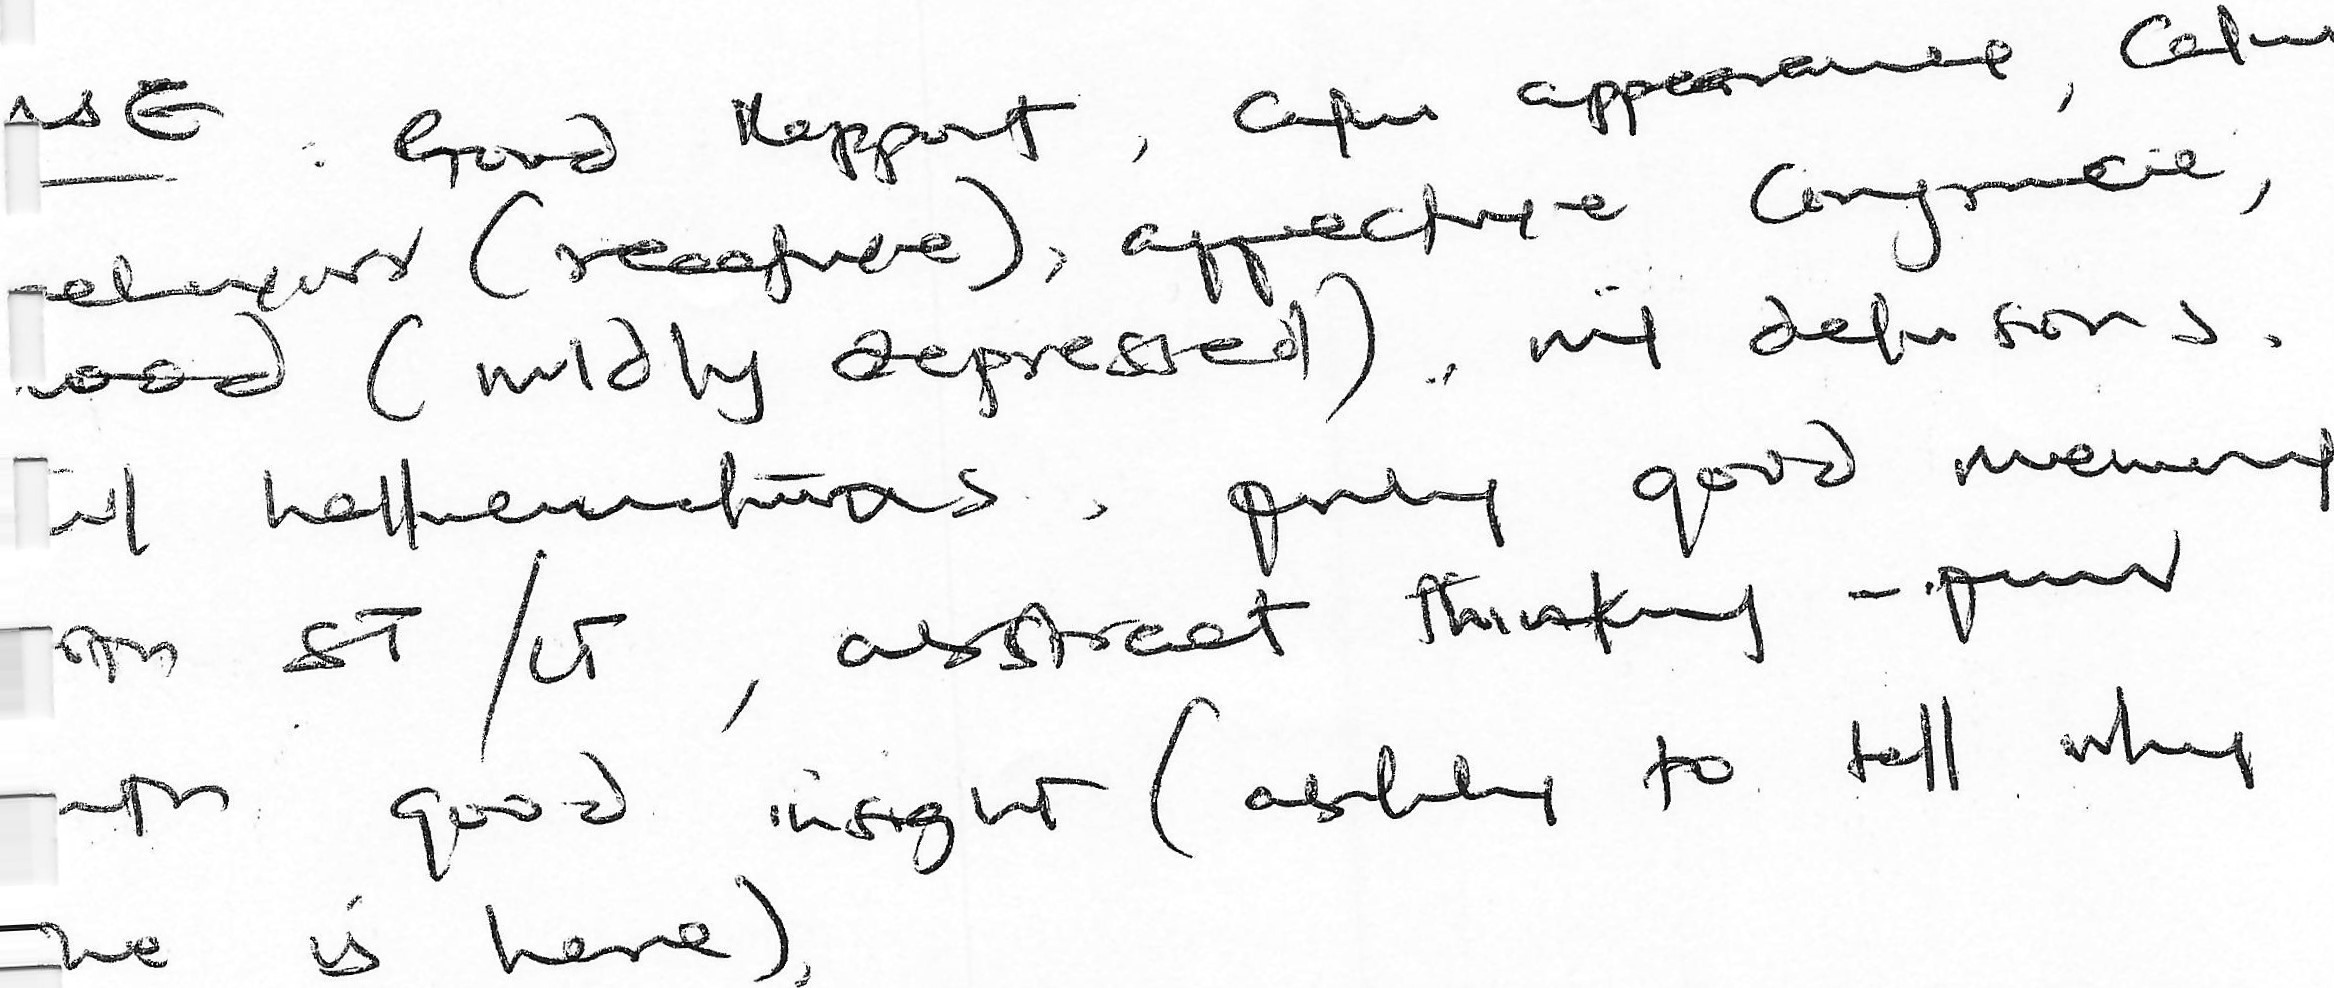 MSE : Good Rapport, Calm appearance, Calm
behaviour (receptive), affective congruence,
mood (mildly depressed), nil delusions.
nil hallucinations, fairly good memory
both ST/LT, abstract thinking -
with good insight (ability to tell why
he is here),